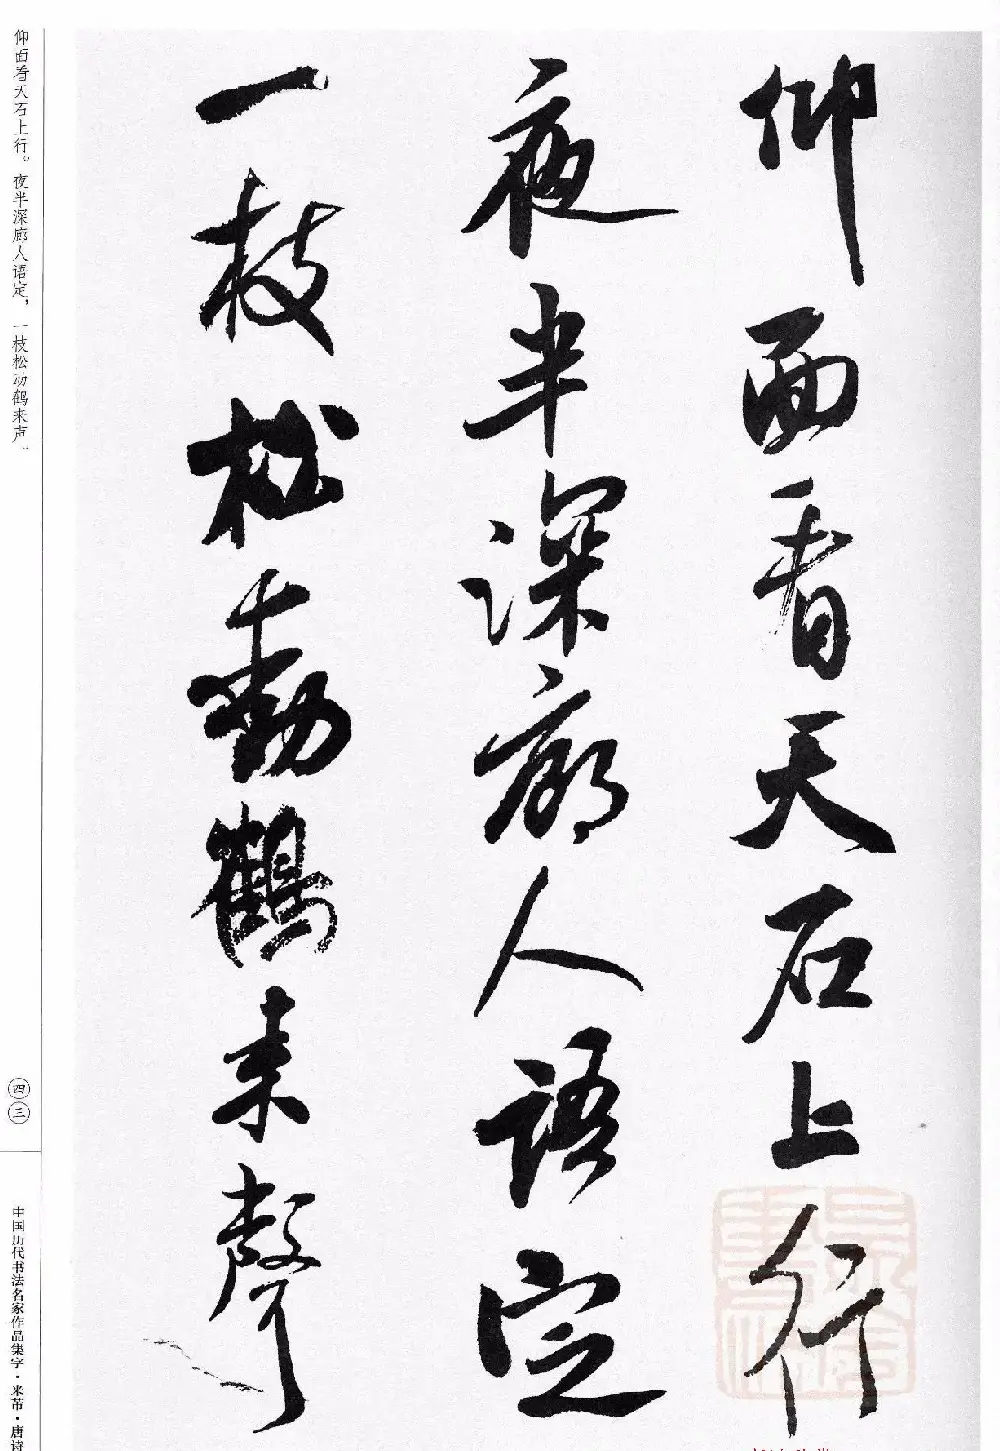 仰面看天石上行
夜半深廊人語定
一枝松動鶴来聲
仰面看天石上行。夜半深廊人语定，一枝松动鹤来声。
四三
中国历代书法名家作品集字·米芾·唐诗